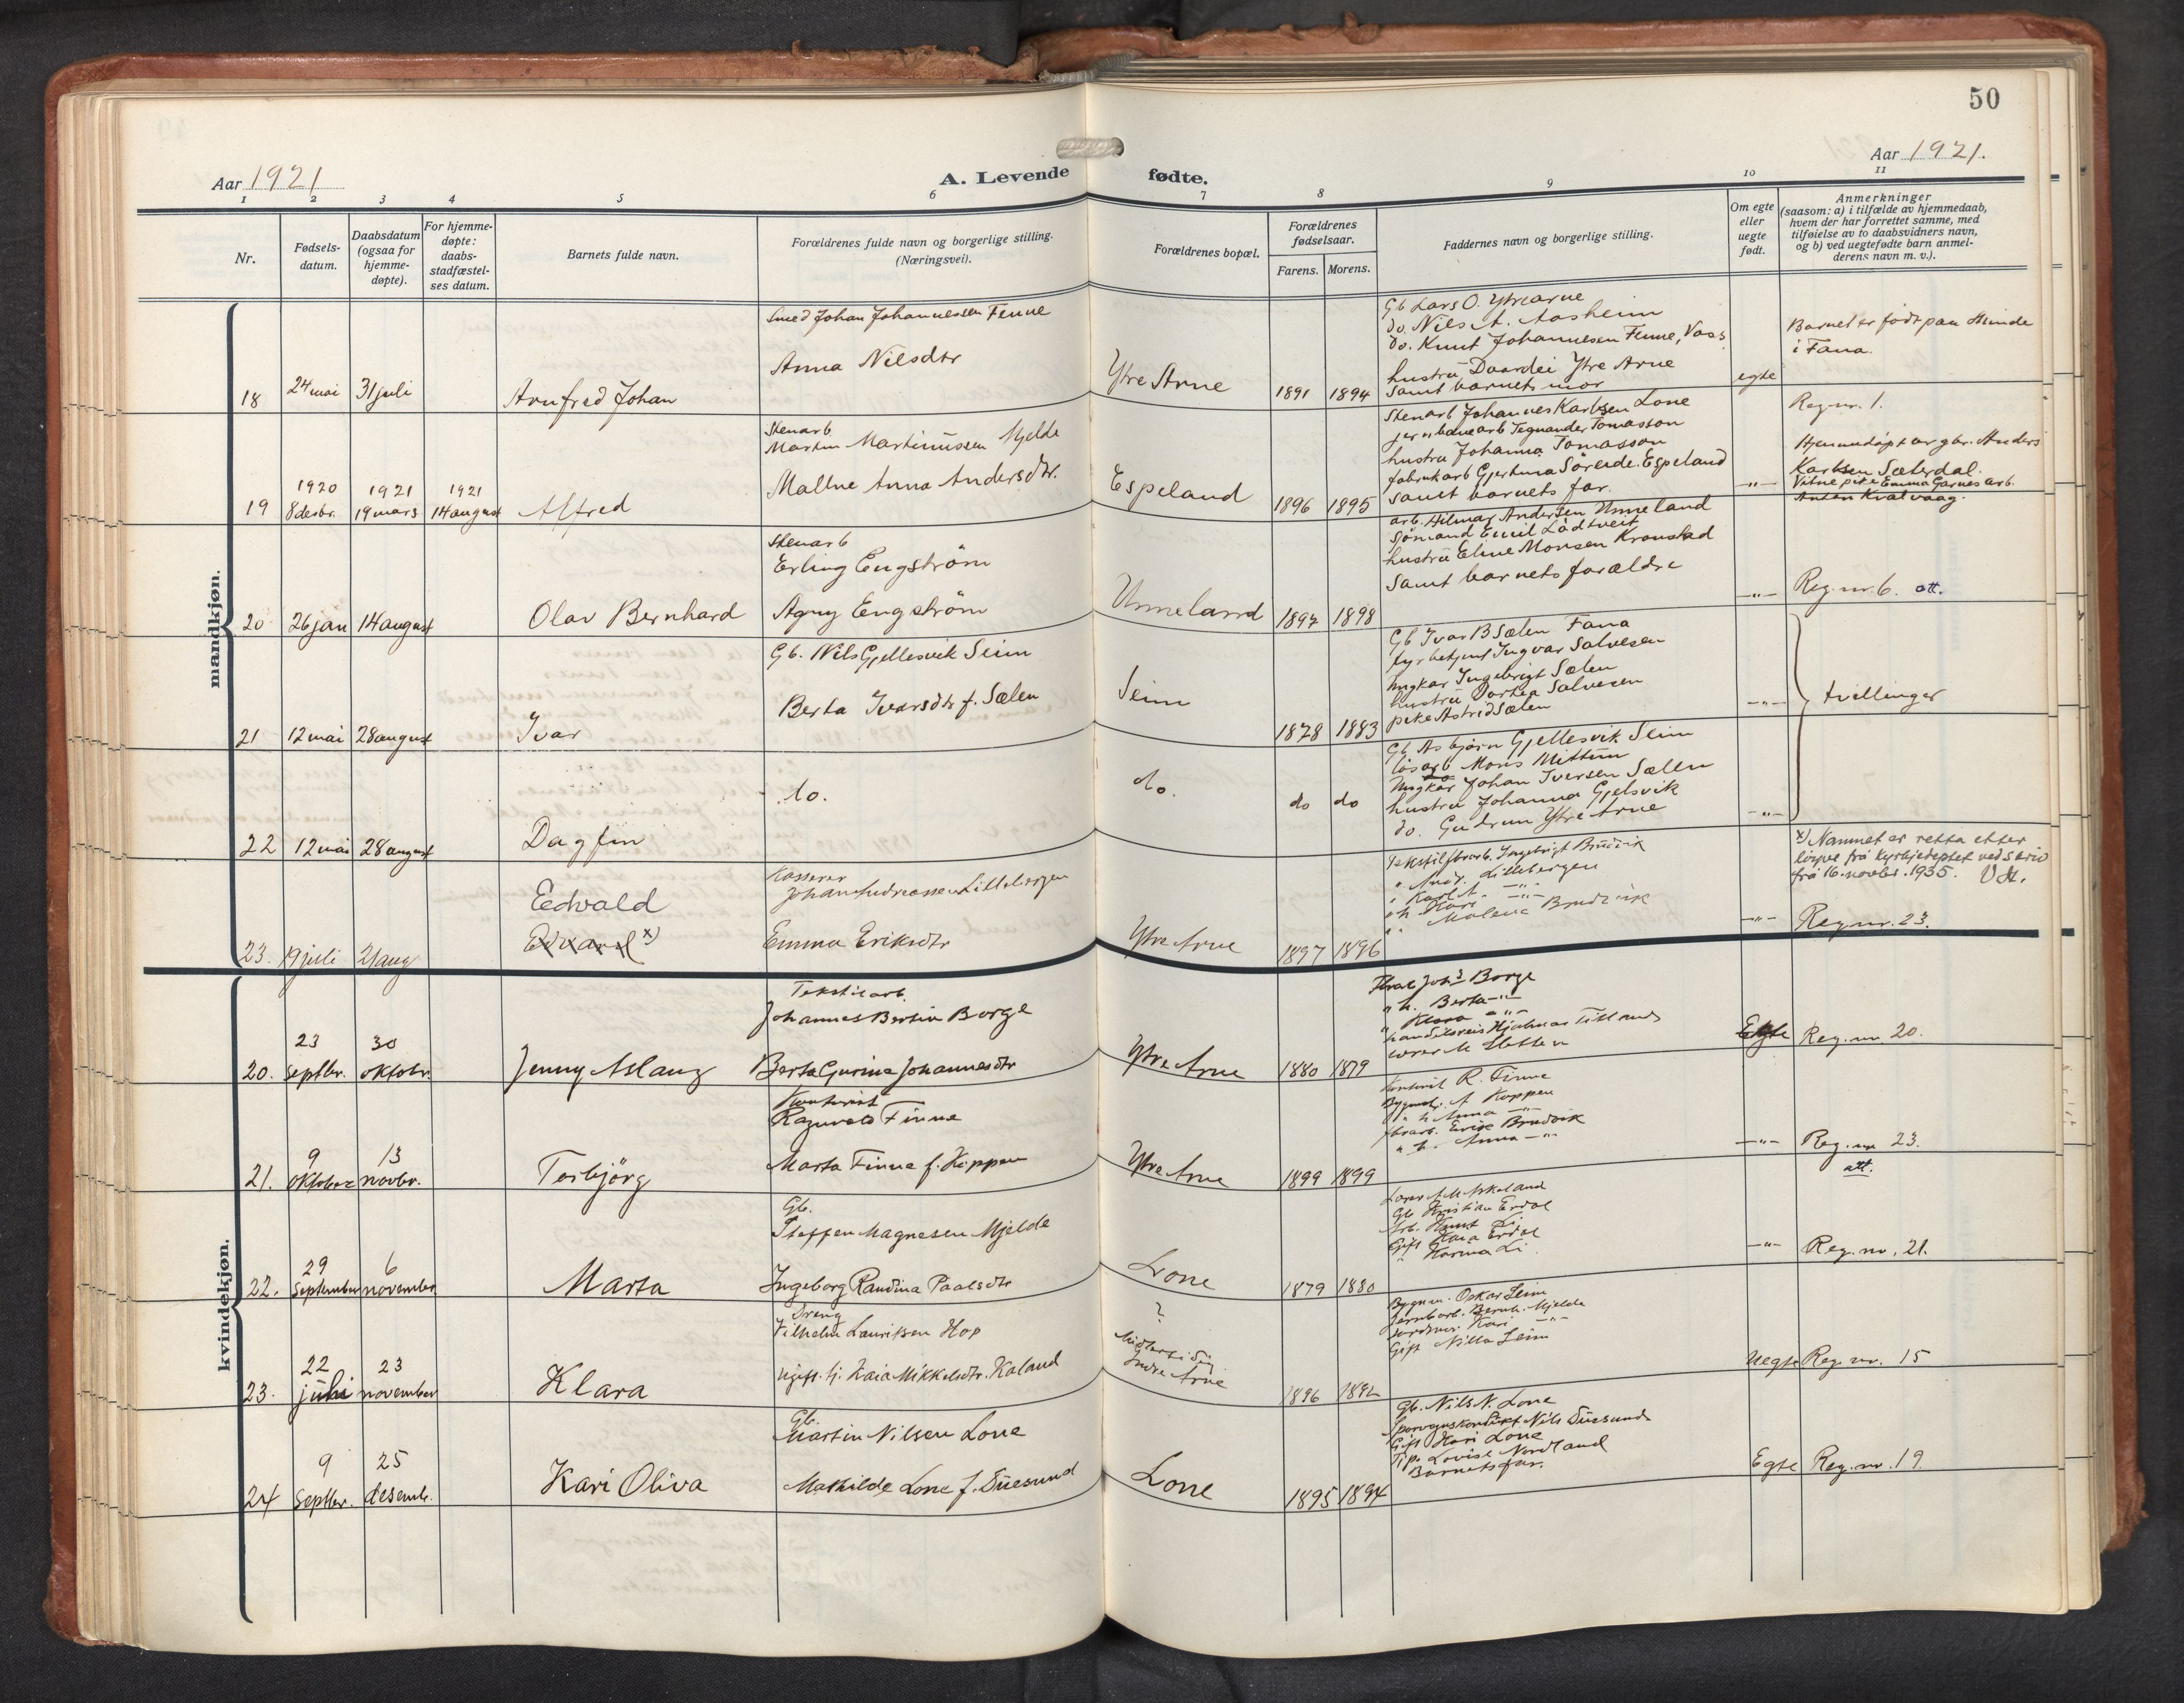 50
Aar 1921
A. Levende fødte.
Aar 1921.
1 2 3 4 5 6 7 8 9 10 11
Nr.
Fødsels-
datum.
Daabsdatum
(ogsaa for
hjemme-
døpte).
For hjemme-
døpte:
daabs-
stadfæstel-
ses datum.
Barnets fulde navn.
Forældrenes fulde navn og borgerlige stilling.
(Næringsvei).
Forældrenes bopæl.
Forældrenes
fødselsaar.
Farens. Morens.
Faddernes navn og borgerlige stilling.
Om egte
eller
uegte
født.
Anmerkninger
(saasom: a) i tilfælde av hjemmedaab,
hvem der har forrettet samme, med
tilføielse av to daabsvidners navn,
og b) ved uegtefødte barn anmel-
derens navn m. v.).
mandkjøn.
18 24 mai 31 juli
Arnfred Johan
Smed Johan Johannessen Finne
Anna Nilsdtr
Ytre Arne
1891 1894
Gb Lars O. Ytrearne
do. Nils A. Aasheim
do. Knut Johannesen Finne, Voss
hustru Daardei Ytre Arne
samt barnets mor
egte
Barnet er født paa Hinde
i Fana.
Reg nr. 1.
19
1920
8 desbr.
1921
19 mars
1921
14 august
Alfred
Stenarb
Martin Martinussen Mjelde
Maline Anna Andersdtr.
Espeland
1896 1895
Stenarb Johannes Karlsen Lone
jernbanearb Tegnander Tomasson
hustru Johanna Tomasson
fabrikarb Gjertina Söreide. Espeland
samt barnets far.
-"-
Hjemmedöpt av gbr. Anders
Karlsen Sæterdal.
Vitne pike Emma Garnes arb.
Anten Kvalvaag.
20 26 jan 14 august
Olav Bernhard
Stenarb
Erling Engström
Agny Engström
Unneland
1897 1898
arb. Hilmar Andersen Unneland
Sjömand Emil Lådtveit
hustru Eline Monsen Kronstad
Samt barnets forældre
-"-
Reg. nr. 6. att.
21 12 mai 28 august
Ivar
Gb. Nils Gjellesvik Seim
Berta Ivarsdtr f. Sælen
Seim
1878 1883
Gb Ivar B Sælen Fana
fyrbetjent Ingvar Salvesen
Ungkar Ingebrigt Sælen
hustru Dortea Salvesen
pike Astrid Sælen
-"-
tvillinger
22 12 mai 28 august
Dagfin
do.
do.
do do
Gb Asbjörn Gjellesvik Seim
lösarb Mons Mittun
Ungkar Johan Iversen Sælen
hustru Johanna Gjelsvik
do. Gudrun Ytre Arne
-"-
23. 19 juli 21 aug
Edvald
Edvard x)
Kasserer
Johan Andreassen Lillebergen
Emma Eriksdtr
Ytre Arne
1897 1896
Tekstilfbrarb. Ingebrigt Brudvik
" Andr. Lillebergen
" Karl A. -"-
" h. Kari -"-
" Malene Brudvik
-"-
x) Namnet er retta etter
löyve frå kyrkjedeptet ved skriv
frå 16. novbr. 1935.
Reg. nr. 23.
kvindekjøn.
20.
23
septbr.
30
oktobr.
Jenny Aslaug
Tekstilarb.
Johannes Bertin Borge
Berta Gurine Johannesdtr
Ytre Arne
1880 1879
Johs Borge
" h. Berta -"-
" Klara -"-
handelsreis Hjalmar Titland
lærer M Sletten
Egte
Reg. nr. 20.
21.
9
oktober
13
novbr.
Torbjörg
Kontorist
Ragnvald Finne
Marta Finne f. Koppen
Ytre Arne
1899 1899
Kontorist R. Finne
Bygmstr. A Koppen
" h Anna -"-
fbrarb. Erik Brudvik
" h. Anna -"-
-"-
Reg. nr 23.
att.
22.
29
September
6
november
Marta
Gb.
Steffen Magnesen Mjelde
Ingeborg Randina Paalsdtr
Lone
1879 1880
Lærer A M Askeland
Gb Kristian Erdal
Arb. Knut Li
Gift Kaia Erdal
" Karina Li.
-"-
Reg. nr. 21.
23.
22
juli
23
november
Klara
Dreng
Vilhelm Lauritsen Hop
ugift. tj. Kaia Mikkelsdtr. Kaland
?
Midlertidig
Indre Arne
1896 1892
Bygm. Oskar Seim
Jernbarb. Bernh. Mjelde
Jordmor Kari -"-
Gift Nilla Seim
Uegte
Reg. nr. 15
24
9
Septbr.
25
desemb.
Kari Oliva
Gb.
Martin Nilsen Lone
Mathilde Lone f. Tuesund
Lone
1895 1894
Gb. Nils N. Lone
Sporveiskondukt Nils Tuesund
Gift Kari Lone
Tjp. Lovise Nordland
Barnets far.
Egte
Reg. nr. 19.